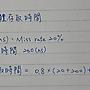 體存取時間
ns)，Miss rate 20%
時間 200(ns)
取時間 = 0.8 × (20+200) +